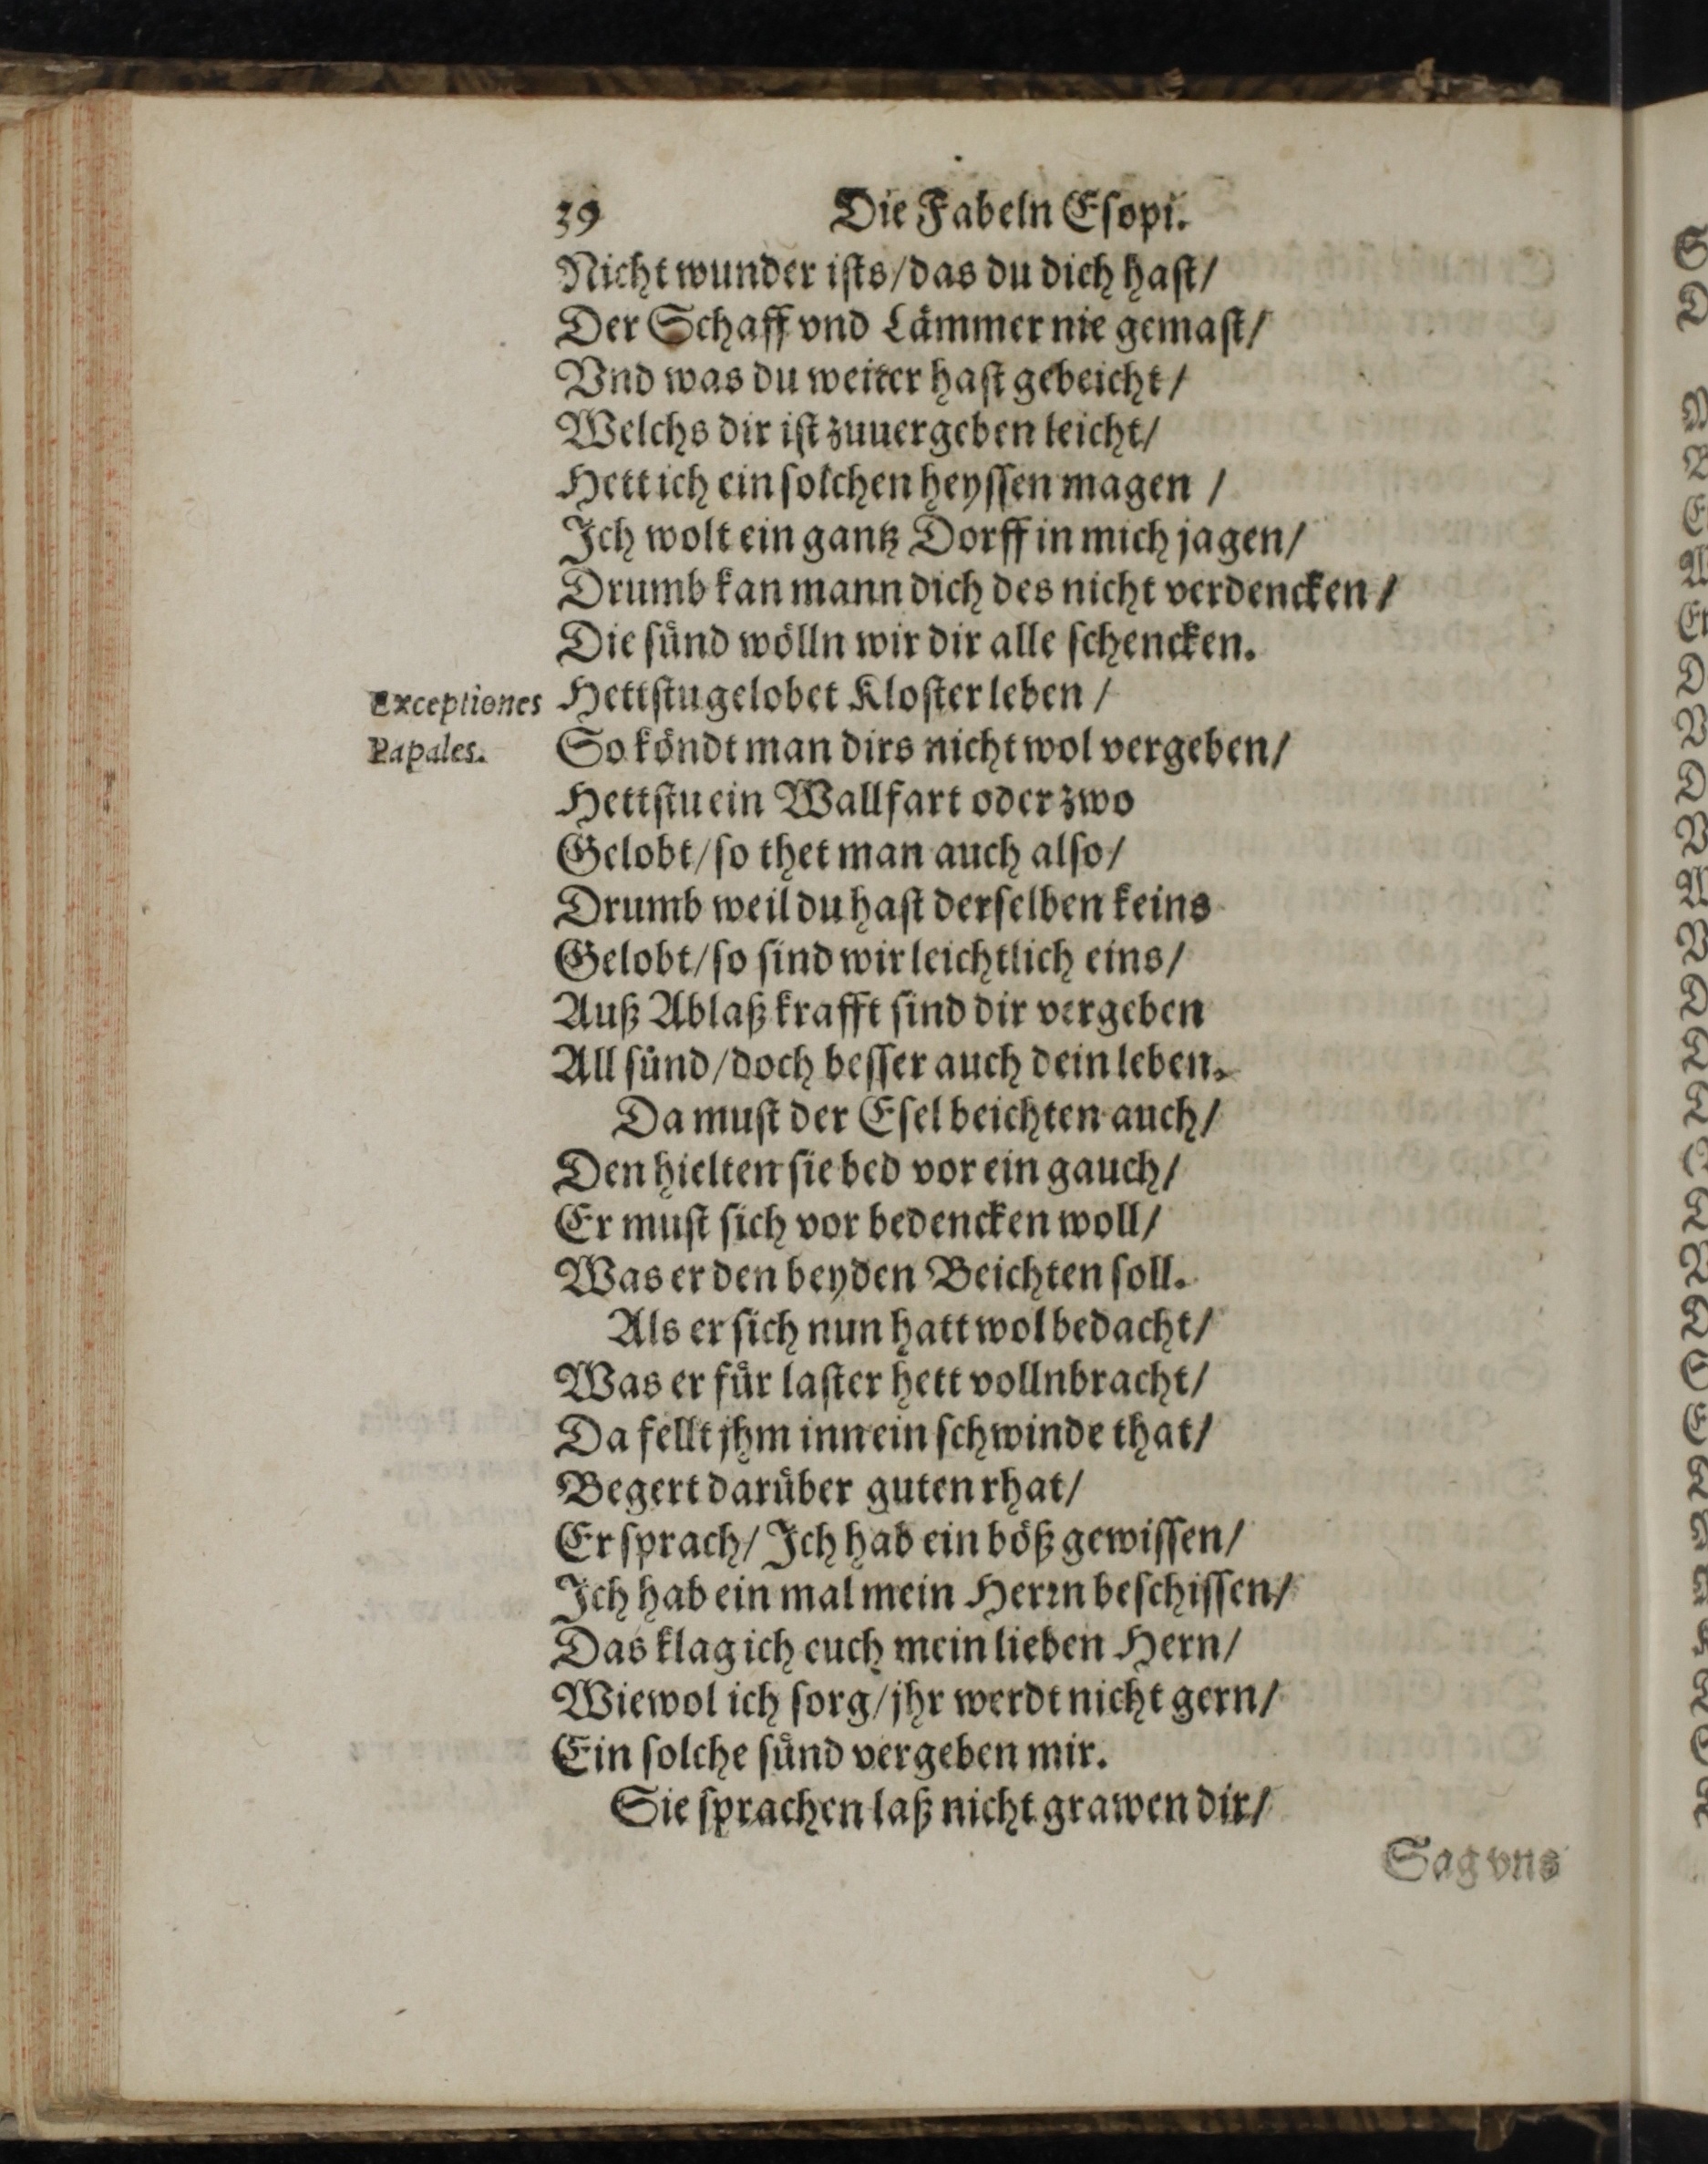 39 Die Fabeln Eſopi.
Nicht wunder iſts/das du dich haſt/
Der Schaff vnd Lämmer nie gemaſt/
Vnd was du weiter haſt gebeicht/
Welchs dir iſt zuuergeben leicht/
Hett ich ein ſolchen heyſſen magen /
Jch wolt ein gantz Dorff in mich jagen/
Drumb kan mann dich des nicht verdencken/
Die ſünd wölln wir dir alle ſchencken.
Exceptiones Hettſtu gelobet Kloſter leben /
Papales. So köndt man dirs nicht wol vergeben/
Hettſtu ein Wallfart oder zwo
Gelobt/ſo thet man auch alſo/
Drumb weil du haſt derſelben keins
Gelobt/ſo ſind wir leichtlich eins/
Auß Ablaß krafft ſind dir vergeben
All ſünd/doch beſſer auch dein leben.
Da muſt der Eſel beichten auch/
Den hielten ſie bed vor ein gauch/
Er muſt ſich vor bedencken woll/
Was er den beyden Beichten ſoll.
Als er ſich nun hatt wol bedacht/
Was er für laſter hett vollnbracht/
Da fellt jhm inn ein ſchwinde that/
Begert darüber guten rhat/
Er ſprach/ Jch hab ein böß gewiſſen/
Jch hab ein mal mein Herrn beſchiſſen/
Das klag ich euch mein lieben Hern/
Wiewol ich ſorg/jhr werdt nicht gern/
Ein ſolche ſünd vergeben mir.
Sie ſprachen laß nicht grawen dir/
Sag vns